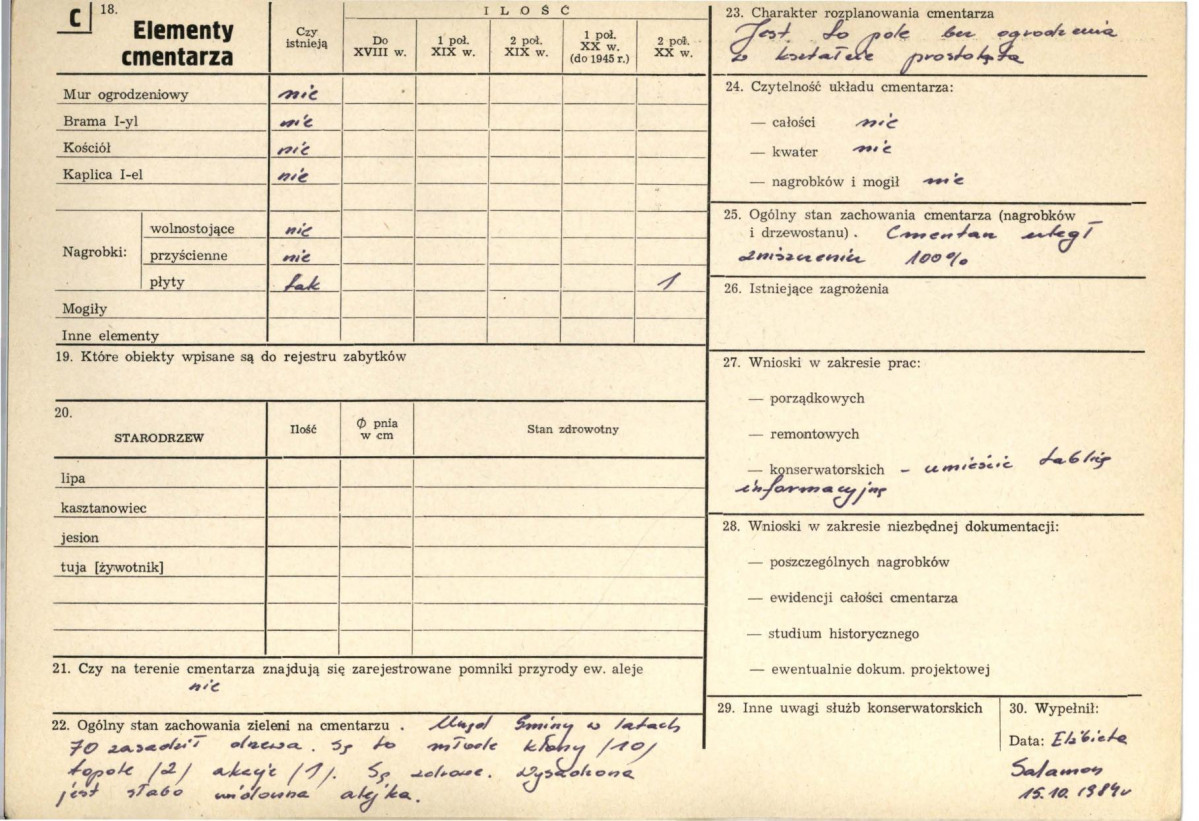 C
18.
Elementy
cmentarza
Czy
istnieją
I L O Ś Ć
Do
XVIII w.
1 poł.
XIX w.
2 poł.
XIX w.
1 poł.
XX w.
(do 1945 r.)
2 poł.
XX w.
Mur ogrodzeniowy nie
Brama I-yl nie
Kościół nie
Kaplica I-el nie
Nagrobki:
wolnostojące nie
przyścienne nie
płyty tak 1
Mogiły
Inne elementy
19. Które obiekty wpisane są do rejestru zabytków
20.
STARODRZEW
Ilość
Ø pnia
w cm
Stan zdrowotny
lipa
kasztanowiec
jesion
tuja [żywotnik]
21. Czy na terenie cmentarza znajdują się zarejestrowane pomniki przyrody ew. aleje
nie
22. Ogólny stan zachowania zieleni na cmentarzu . Urząd Gminy w latach
70 zasadził drzewa. Są to młode klony /10/
topole /2/ akacje /1/. Są zdrowe. Wysadzona
jest słabo widoczna alejka.
23. Charakter rozplanowania cmentarza
Jest to pole bez ogrodzenia
w kształcie prostokąta
24. Czytelność układu cmentarza:
— całości nie
— kwater nie
— nagrobków i mogił nie
25. Ogólny stan zachowania cmentarza (nagrobków
i drzewostanu) . Cmentarz uległ
zniszczeniu 100%
26. Istniejące zagrożenia
27. Wnioski w zakresie prac:
— porządkowych
— remontowych
— konserwatorskich - umieścić tablicę
informacyjną
28. Wnioski w zakresie niezbędnej dokumentacji:
— poszczególnych nagrobków
— ewidencji całości cmentarza
— studium historycznego
— ewentualnie dokum. projektowej
29. Inne uwagi służb konserwatorskich
30. Wypełnił:
Data: Elżbieta
Salamon
15.10.1984r